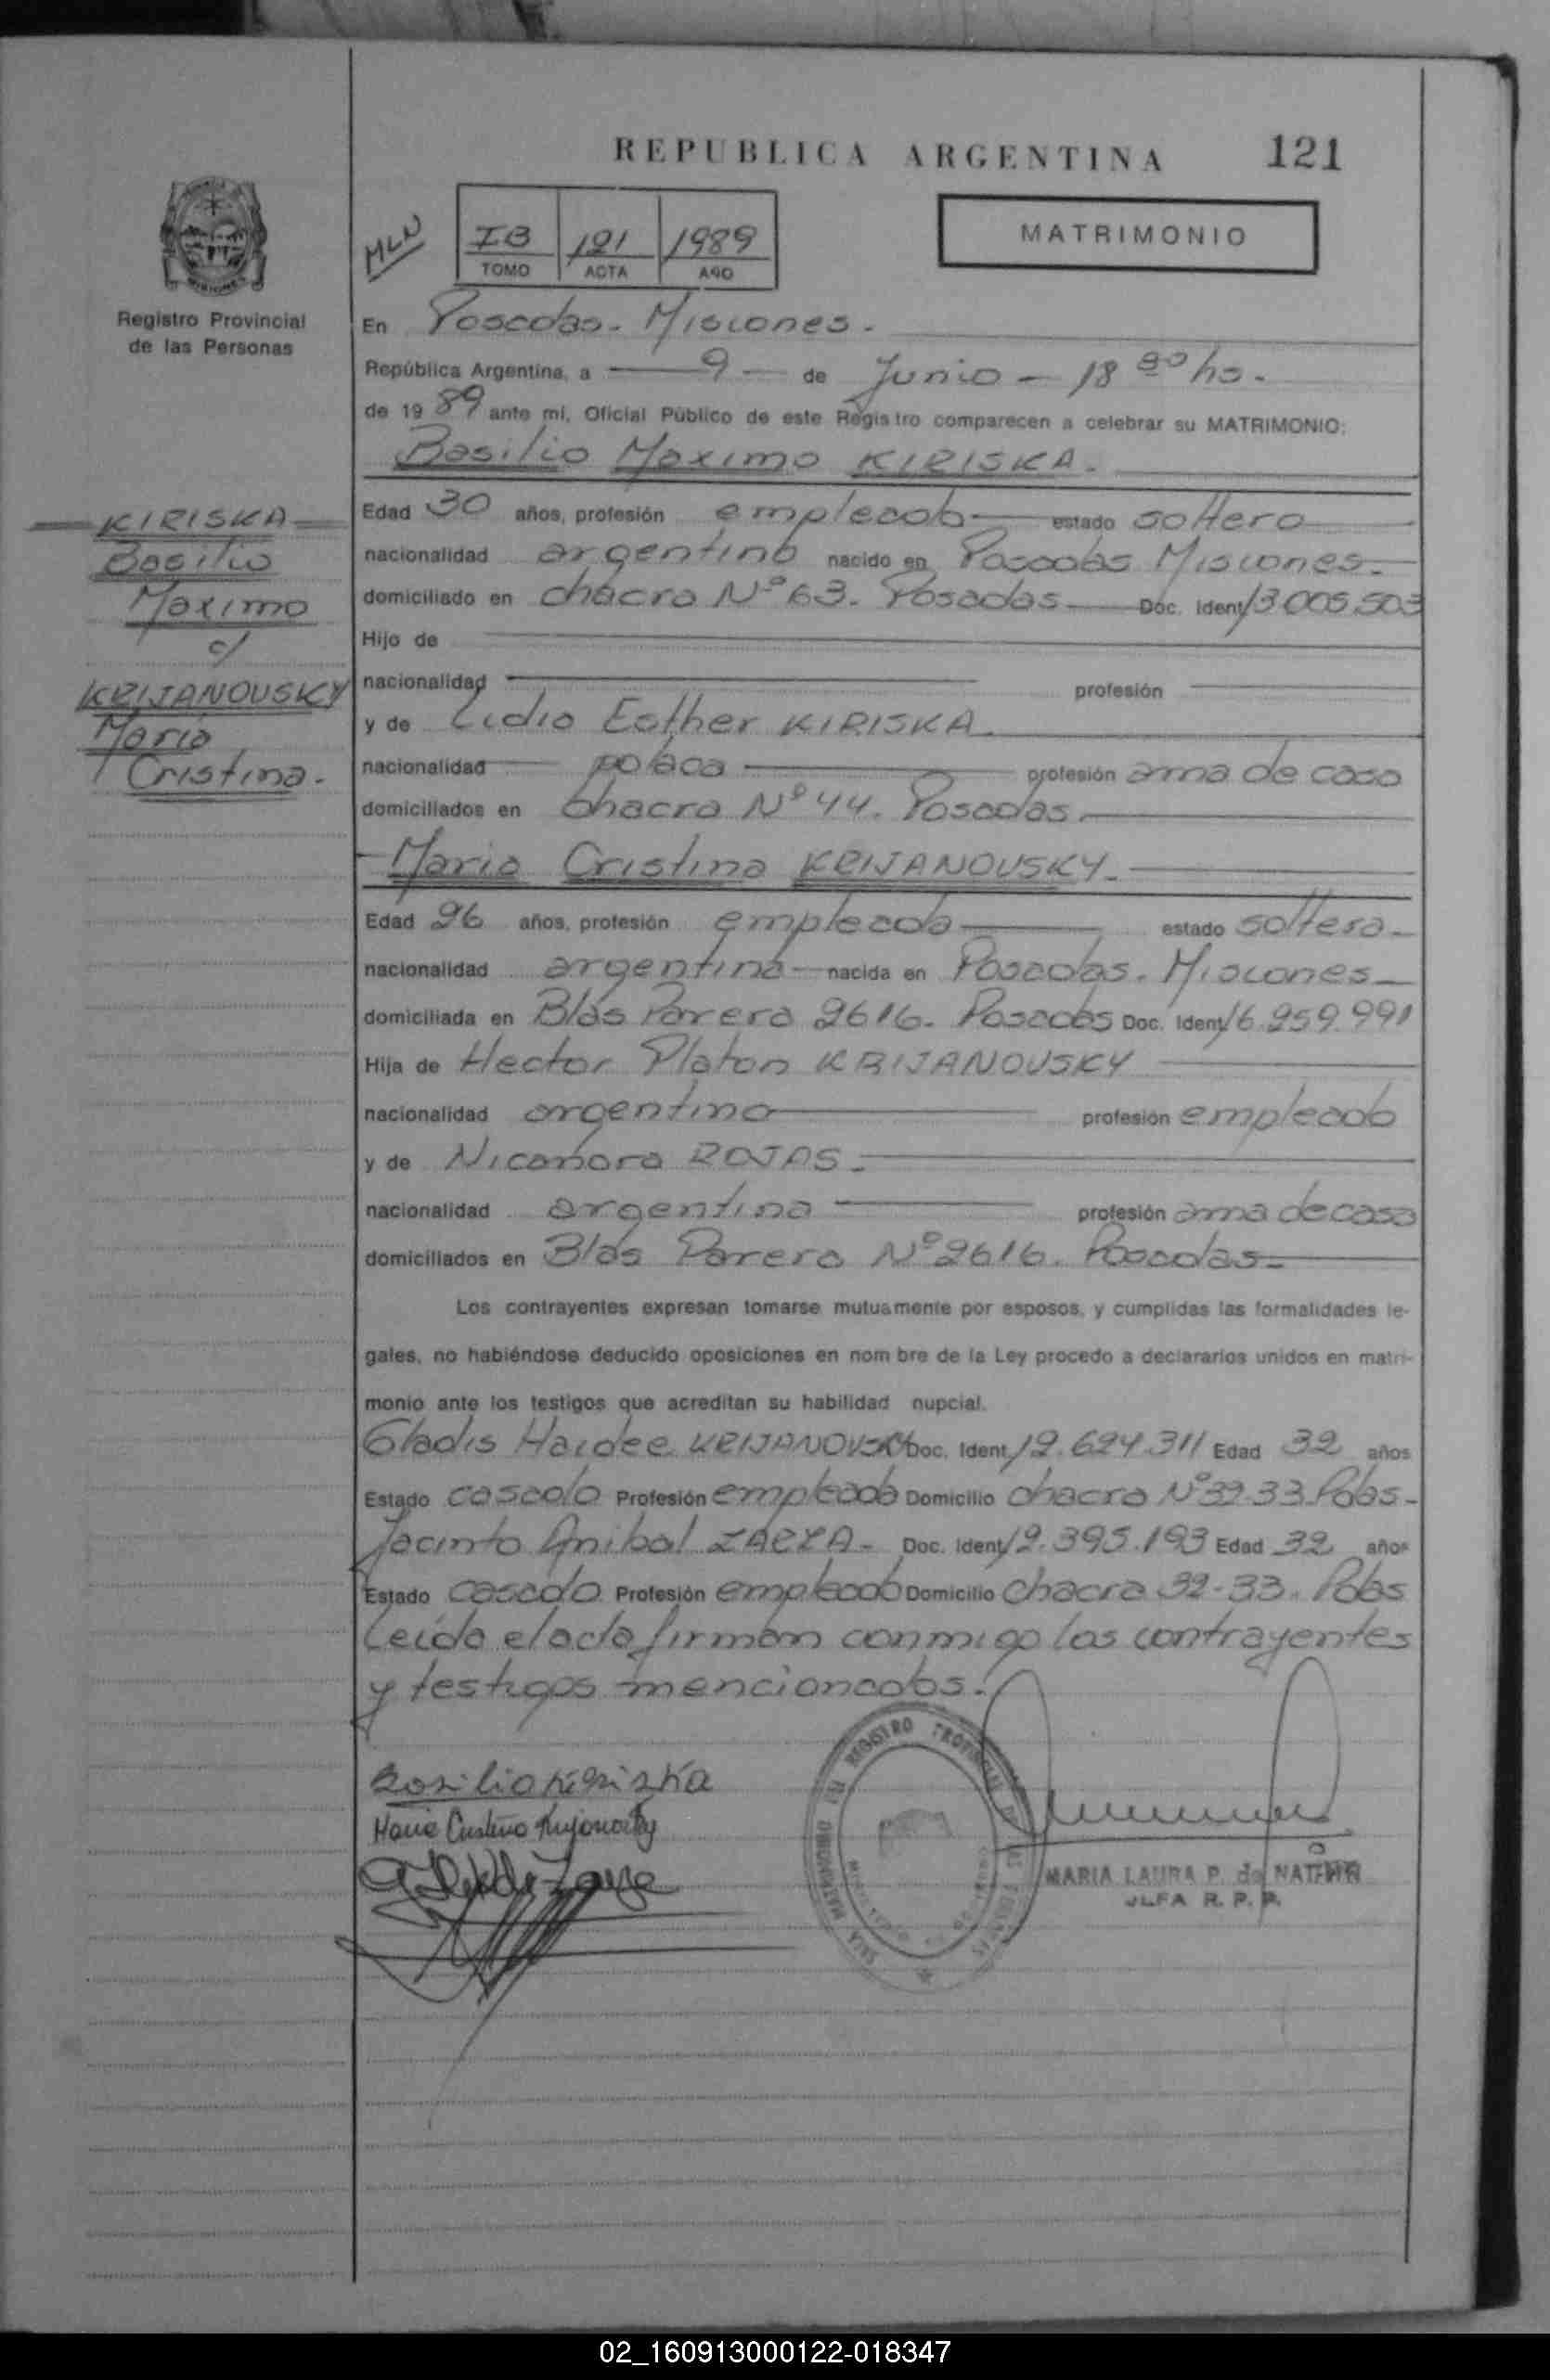 REPUBLICA ARGENTINA 121
MATRIMONIO
MLN
IB 121 1989
TOMO ACTA AÑO
MISIONES
Registro Provincial
de las Personas
En Posadas - Misiones.
República Argentina, a 9 de Junio - 18 20 hs.
de 1989 ante mí, Oficial Público de este Registro comparecen a celebrar su MATRIMONIO:
Basilio Maximo KIRISKA.
KIRISKA
Basilio
Maximo
c/
KRIJANOUSKY
Maria
Cristina.
Edad 30 años, profesión empleado estado soltero
nacionalidad argentino nacido en Posadas Misiones.
domiciliado en chacra Nº 63. Posadas Doc. Ident. 13.005.503
Hijo de
nacionalidad profesión
y de Lidia Esther KIRISKA.
nacionalidad polaca profesión ama de casa
domiciliados en Chacra Nº 44. Posadas.
Maria Cristina KRIJANOUSKY.
Edad 26 años, profesión empleada estado soltera
nacionalidad argentina nacida en Posadas. Misiones
domiciliada en Blas Parera 2616. Posadas Doc. Ident. 16.259.991
Hija de Hector Platon KRIJANOUSKY
nacionalidad argentino profesión empleado
y de Nicanora ROJAS.
nacionalidad argentina profesión ama de casa
domiciliados en Blas Parera Nº 2616. Posadas
Los contrayentes expresan tomarse mutuamente por esposos, y cumplidas las formalidades le-
gales, no habiéndose deducido oposiciones en nom bre de la Ley procedo a declararlos unidos en matri-
monio ante los testigos que acreditan su habilidad nupcial.
Gladis Haidee KRIJANOVSKY Doc. Ident. 12.624.311 Edad 32 años
Estado casado Profesión empleada Domicilio chacra Nº 32-33. Pdas.
Jacinto Anibal ZARZA. Doc. Ident. 12.395.193 Edad 32 años
Estado casado Profesión empleado Domicilio chacra 32-33. Pdas
Leida el acta firman conmigo los contrayentes
y testigos mencionados.
Basilio Kiriska
Maria Cristina Krijanovsky
REGISTRO PROVINCIAL DE LAS PERSONAS
MARIA LAURA P. de
JEFA R. P. P.
02_160913000122-018347